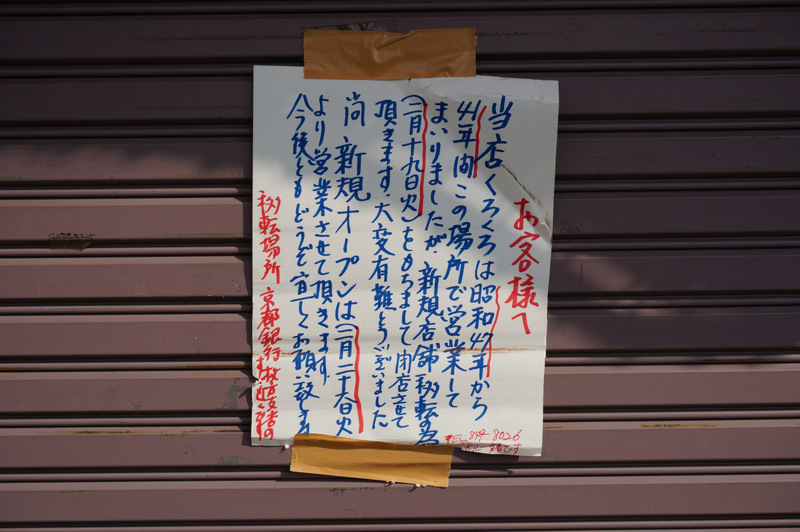 お客様へ
当店くろくろは昭和47年から
41年間この場所で営業して
まいりましたが、新規店舗移転の為
(二月十九日火)をもちまして閉店立て
頂きます。大変有難とうございました
尚、新規オープンは(二月二十六日火
より営業させて頂きます。
今後ともどうぞ宜しくお願い致します
移転場所 京都銀行
TEL 844-8026